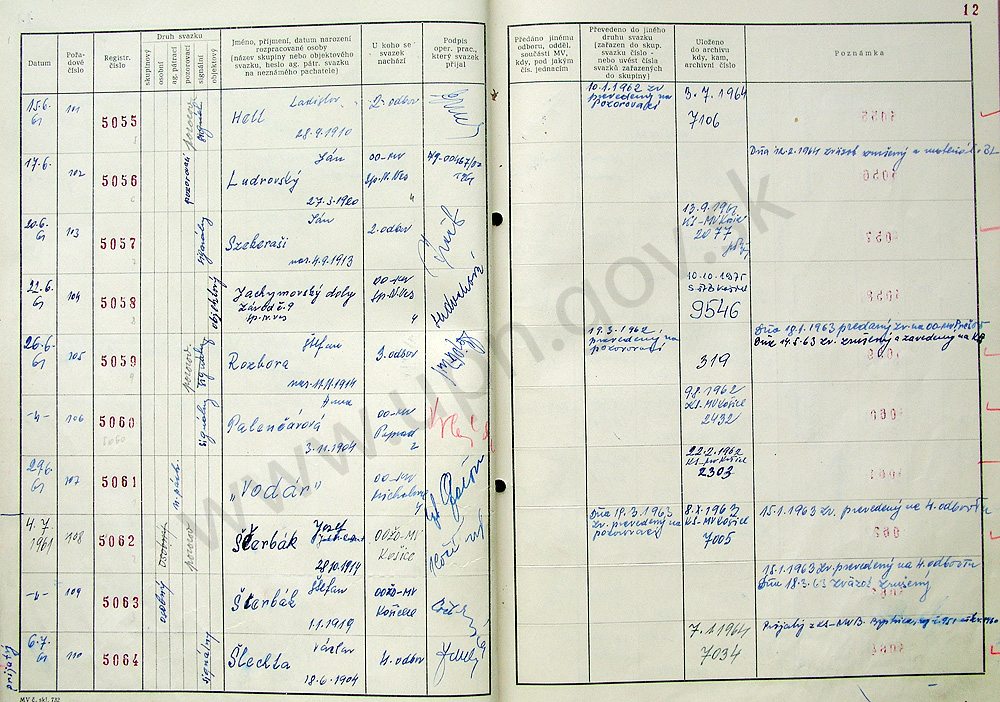 12
Datum
Pořa-
dové
číslo
Registr.
číslo
Druh svazku
skupinový
osobní
ag. pátrací
pozorovací
signální
objektový
Jméno, příjmení, datum narození
rozpracované osoby
(název skupiny nebo objektového
svazku, heslo ag. pátr. svazku
na neznámého pachatele)
U koho se
svazek
nachází
Podpis
oper. prac.,
který svazek
přijal
Předáno jinému
odboru, odděl.
součásti MV,
kdy, pod jakým
čís. jednacím
Převedeno do jiného
druhu svazku
(zařazen do skup.
svazku číslo -
nebo uvést čísla
svazků zařazených
do skupiny)
Uloženo
do archivu
kdy, kam,
archivní číslo
Poznámka
15.6.
61
101
5055
Ladislav
Hell
28.9.1910
2. odbor
10.1.1962 zv
prevedený na
pozorovací
3.7.1964
7106
17.6.
102
5056
Ján
Ludrovský
27.3.1920
OO-MV
Sp.N.Ves
Dňa 12.2.1964 zväzok zrušený a materiál
20.6.
61
103
5057
signálny
Ján
Szekeraši
nar. 4.9.1913
2. odbor
13.9.1962
KS-MV Košice
2077
22.6.
61
104
5058
objektový
Jachymovský doly
Závod č. 9
Sp.N.Ves
OO-MV
Sp.N.Ves
10.10.1975
9546
26.6.
61
105
5059
signálny
Štefan
Rozbora
3. odbor
19.3.1962
prevedený na
pozorovací
319
Dňa 18.1.1963 predaný zv. na OO-MV Prešov
Dňa 14.5.63 zv. zrušený a zavedený na
-"-
106
5060
signálny
Anna
Palenčárová
3.11.1904
OO-MV
Poprad
2
9.8.1962
KS-MV Košice
2432
29.6.
61
107
5061
"Vodár"
OO-MV
Michalovce
22.2.1962
KS-MV Košice
2303
4.7.
1961
108
5062
osobný
Jozef
Ščerbák
28.10.1914
OOŽO-MV
Košice
Dňa 19.3.1963
zv. prevedený na
pozorovací
8.X.1963
KS-MV Košice
7005
15.1.1963 zv. prevedený na 4. odbor
-"-
109
5063
osobný
Štefan
Ščerbák
1.1.1919
OOŽO-MV
Košice
15.1.1963 zv. prevedený na 4. odbor
Dňa 18.3.63 zväzok zrušený
prijatý
6.7.
61
110
5064
signálny
Václav
Šlechta
18.6.1904
4. odbor
7.1.1964
7034
Prijatý z KS-MV B. Bystrica
MV č. skl. 732
www.upn.gov.sk